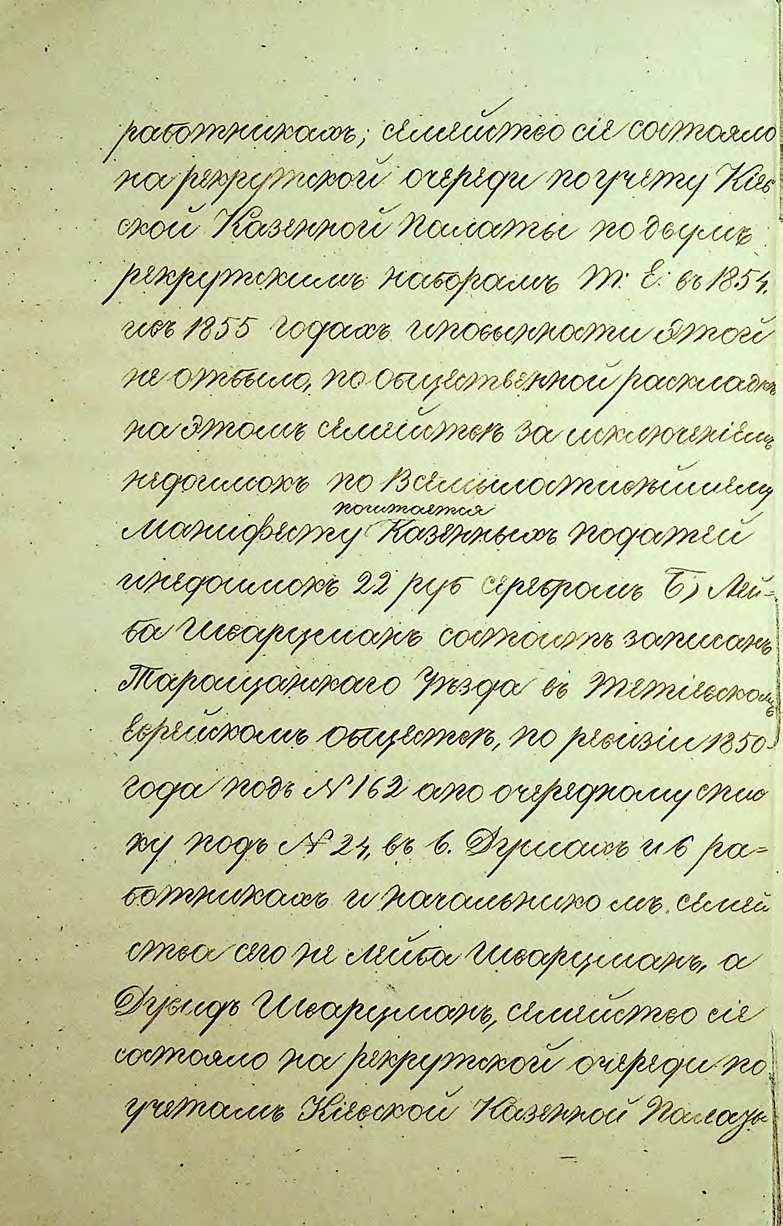 работникахъ; семейство сіе состояло
на рекрутской очереди по учету Кіев
ской Казенной Палаты по двумъ
рекрутскимъ наборамъ т: е: въ 1854.
и въ 1855 годахъ и повинности этой
не отбыло, по общественной раскладкѣ
на этомъ семействѣ за исключеніемъ
недоимокъ по Всемилостивѣйшему
почитается
Манифесту Казенныхъ податей
и недоимокъ 22 руб серебромъ Б) Лей-
ба Шварцманъ состоитъ записанъ
Таращанскаго Уѣзда въ Тетіевскомъ
Еврейскомъ обществѣ, по ревизіи 1850
года подъ № 162 а по очередному спис
ку подъ № 24, въ 6. Душахъ и 6 ра-
ботникахъ и начальникомъ семей
ства сего не Лейба Шварцманъ, а
Дувидъ Шварцманъ, семейство сіе
состояло на рекрутской очереди по
учетамъ Кіевской Казенной Палаты